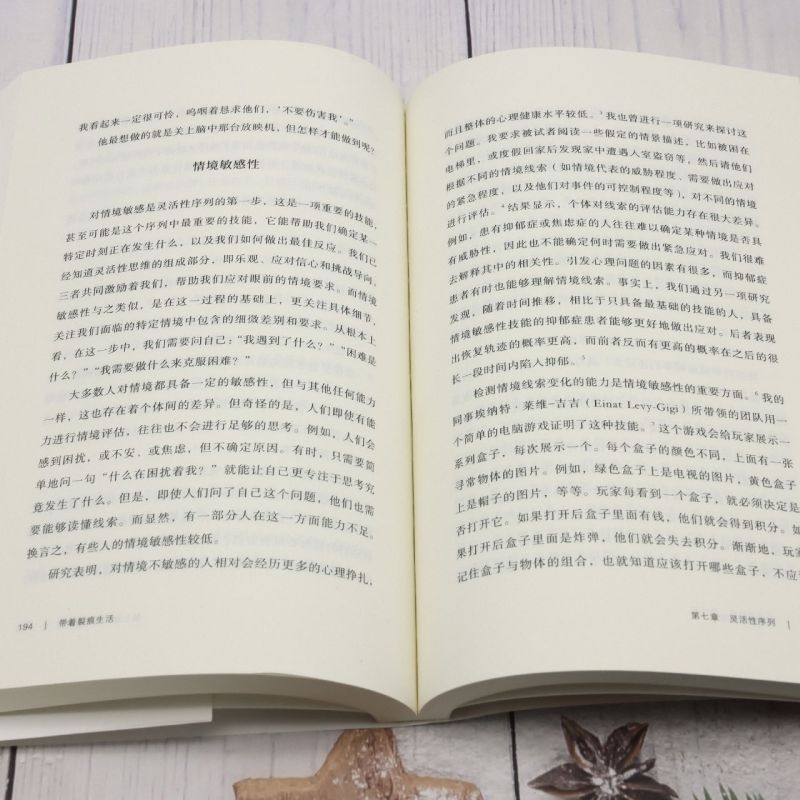 我看起来一定很可怜，呜咽着恳求他们，‘不要伤害我’。”
他最想做的就是关上脑中那台放映机，但怎样才能做到呢？
情境敏感性
对情境敏感是灵活性序列的第一步，这是一项重要的技能，
甚至可能是这个序列中最重要的技能，它能帮助我们确定某一
特定时刻正在发生什么，以及我们如何做出最佳反应。我们已
经知道灵活性思维的组成部分，即乐观、应对信心和挑战导向，
三者共同激励着我们，帮助我们应对眼前的情境要求。而情境
敏感性与之类似，是在这一过程的基础上，更关注具体细节，
关注我们面临的特定情境中包含的细微差别和要求。从根本上
看，在这一步中，我们需要问自己：“我遇到了什么？”“困难是
什么？”“我需要做什么来克服困难？”
大多数人对情境都具备一定的敏感性，但与其他任何能力
一样，这也存在着个体间的差异。但奇怪的是，人们即使有能
力进行情境评估，往往也不会进行足够的思考。例如，人们会
感到困扰，或不安、或焦虑，但不确定原因。有时，只需要简
单地问一句“什么在困扰着我？”就能让自己更专注于思考究
竟发生了什么。但是，即使人们问了自己这个问题，他们也需
要能够读懂线索。而显然，有一部分人在这一方面能力不足。
换言之，有些人的情境敏感性较低。
研究表明，对情境不敏感的人相对会经历更多的心理挣扎，
194 | 带着裂痕生活
而且整体的心理健康水平较低。3我也曾进行一项研究来探讨这
个问题。我要求被试者阅读一些假定的情景描述，比如被困在
电梯里，或度假回家后发现家中遭遇人室盗窃等，然后请他们
根据不同的情境线索（如情境代表的威胁程度、需要做出应对
的紧急程度，以及他们对事件的可控制程度等），对不同的情境
进行评估。4结果显示，个体对线索的评估能力存在很大差异。
例如，患有抑郁症或焦虑症的人往往难以确定某种情境是否具
有威胁性，因此也不能确定何时需要做出紧急应对。我们很难
去解释其中的相关性。引发心理问题的因素有很多，而抑郁症
患者有时也能够理解情境线索。事实上，我们通过另一项研究
发现，随着时间推移，相比于只具备最基础的技能的人，具备
情境敏感性技能的抑郁症患者能够更好地做出应对。后者表现
出恢复轨迹的概率更高，而前者反而有更高的概率在之后的很
长一段时间内陷入抑郁。5
检测情境线索变化的能力是情境敏感性的重要方面。6我的
同事埃纳特·莱维-吉吉（Einat Levy-Gigi）所带领的团队用一
个简单的电脑游戏证明了这种技能。7这个游戏会给玩家展示一
系列盒子，每次展示一个。每个盒子的颜色不同，上面有一张
寻常物体的图片。例如，绿色盒子上是电视的图片，黄色盒子
上是帽子的图片，等等。玩家每看到一个盒子，就必须决定是
否打开它。如果打开后盒子里面有钱，他们就会得到积分。如
果打开后盒子里面是炸弹，他们就会失去积分。渐渐地，玩家
记住盒子与物体的组合，也就知道应该打开哪些盒子，不应
第七章 灵活性序列 |